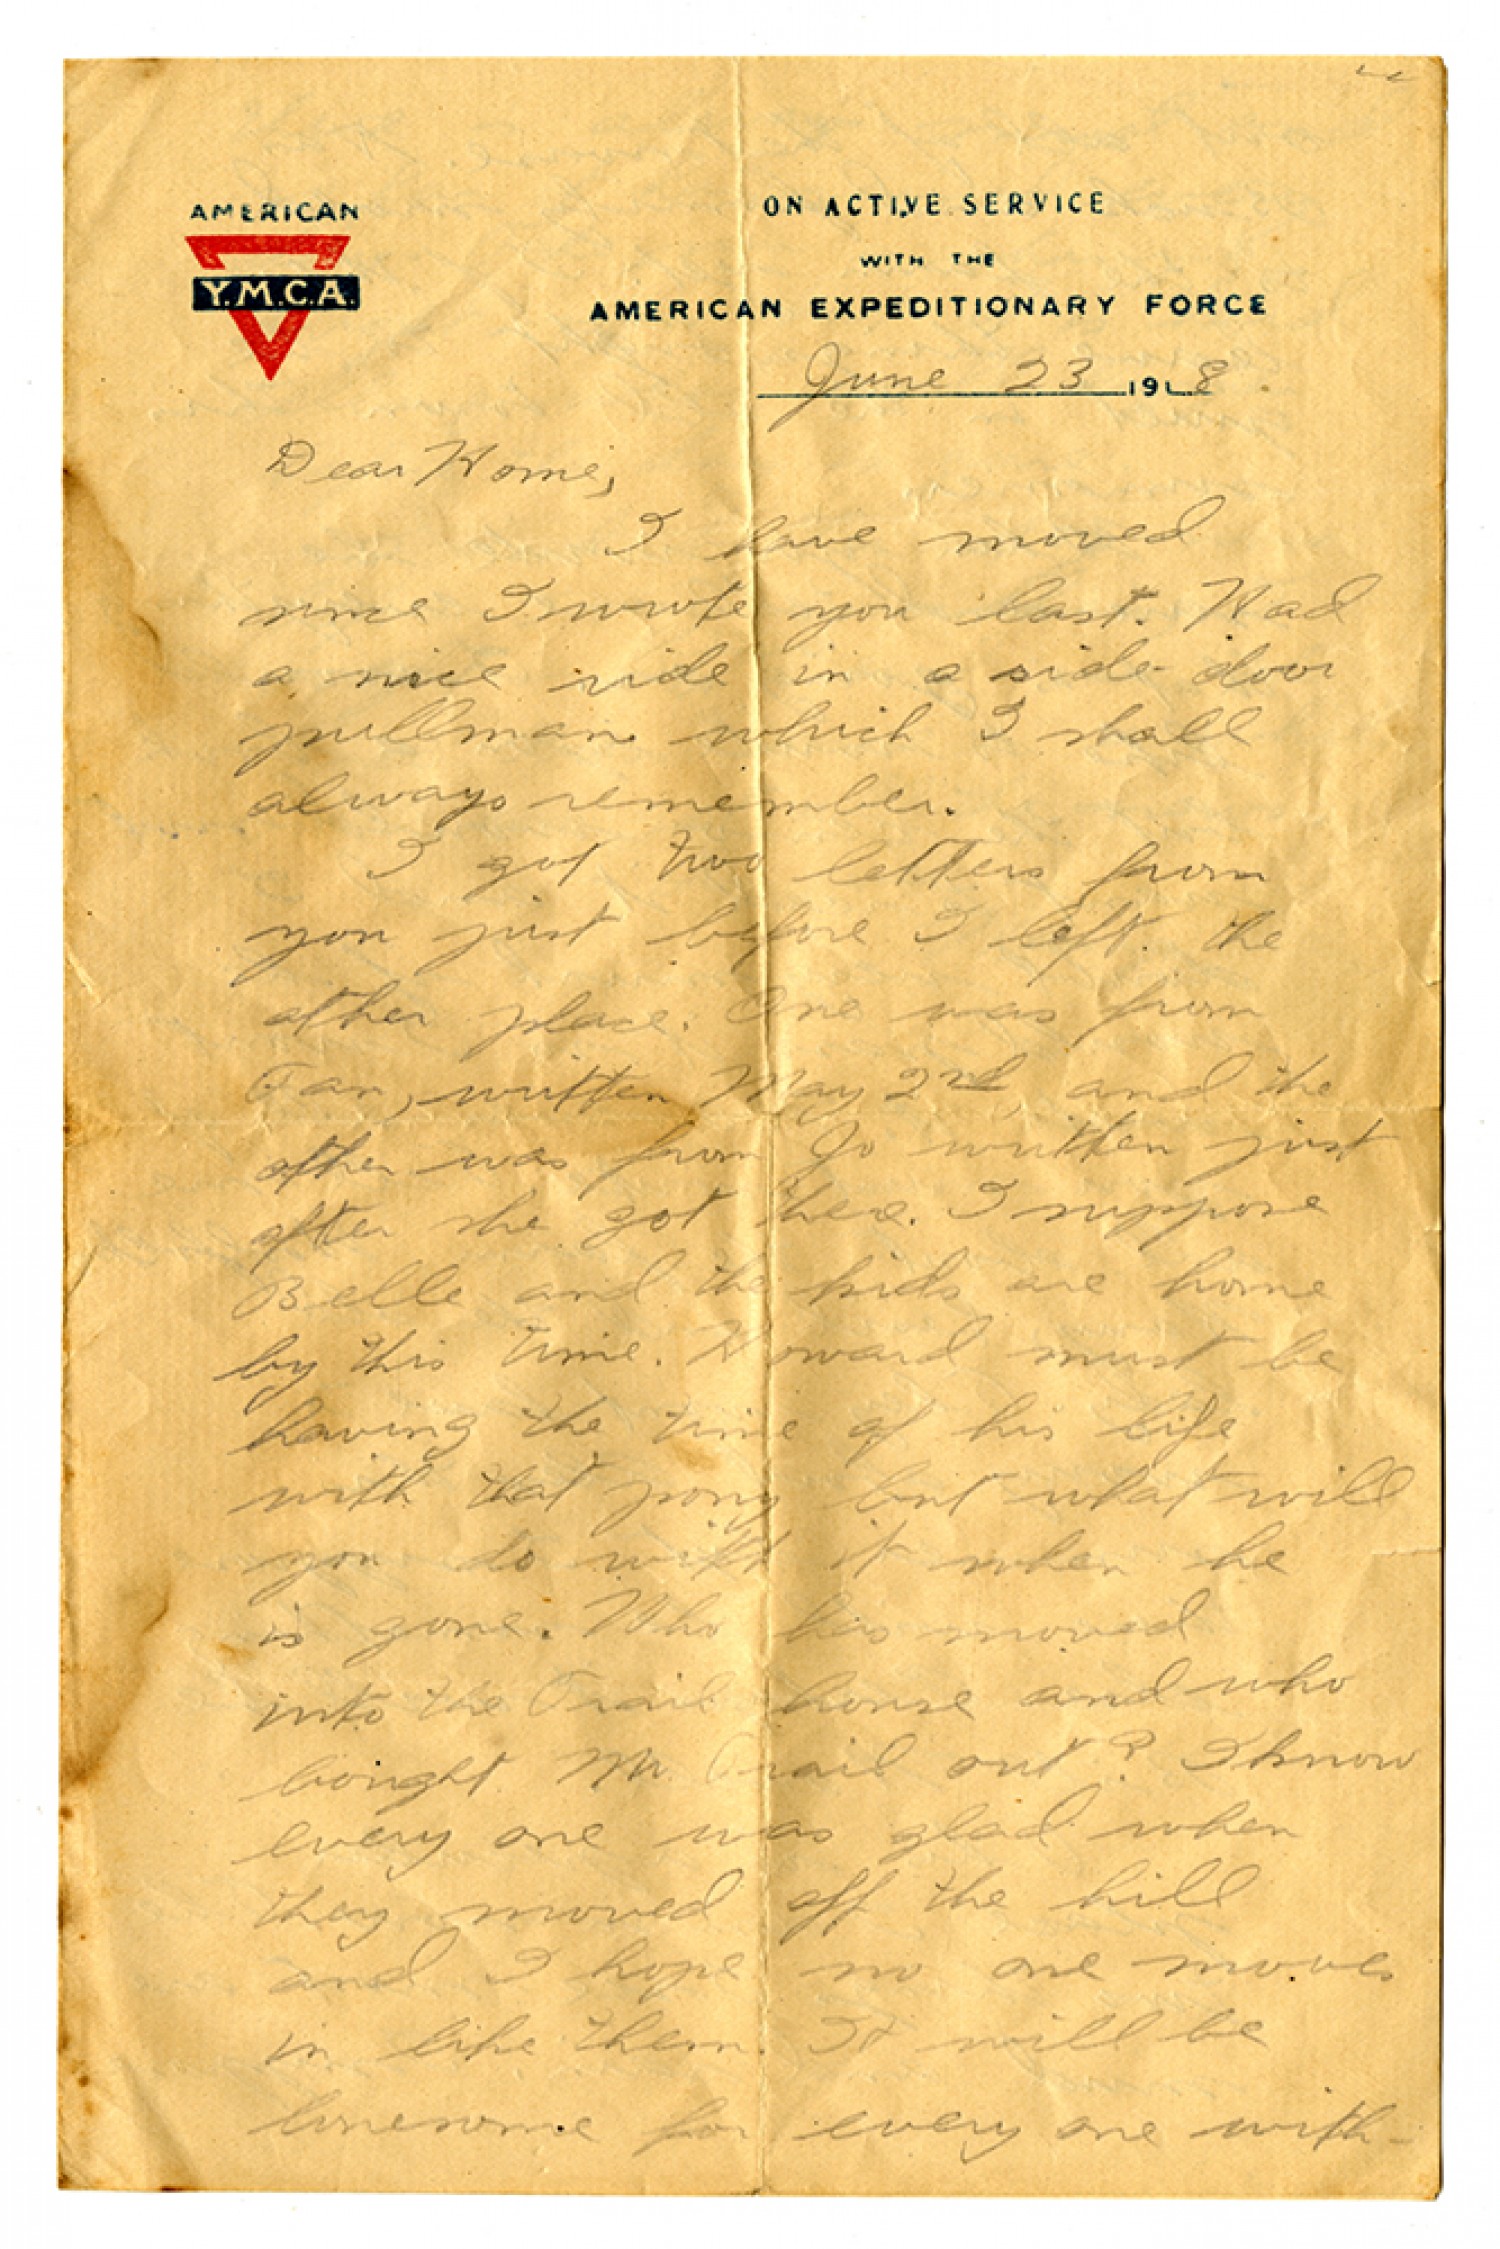 AMERICAN
Y.M.C.A.
ON ACTIVE SERVICE
WITH THE
AMERICAN EXPEDITIONARY FORCE
June 23 1918.
Dear Home,
I have moved
since I wrote you last. Had
a nice ride in a side-door
pullman which I shall
always remember.
I got two letters from
you just before I left the
other place. One was from
Fan, written May 2nd, and the
other was from Jo written just
after she got there. I suppose
Belle and the kids are home
by this time. Howard must be
having the time of his life
with that pony but what will
you do with it when he
is gone. Who has moved
into the Trail house and who
bought Mr. Trail out? I know
every one was glad when
they moved off the hill
and I hope no one moves
in like them. It will be
lonesome for every one with-